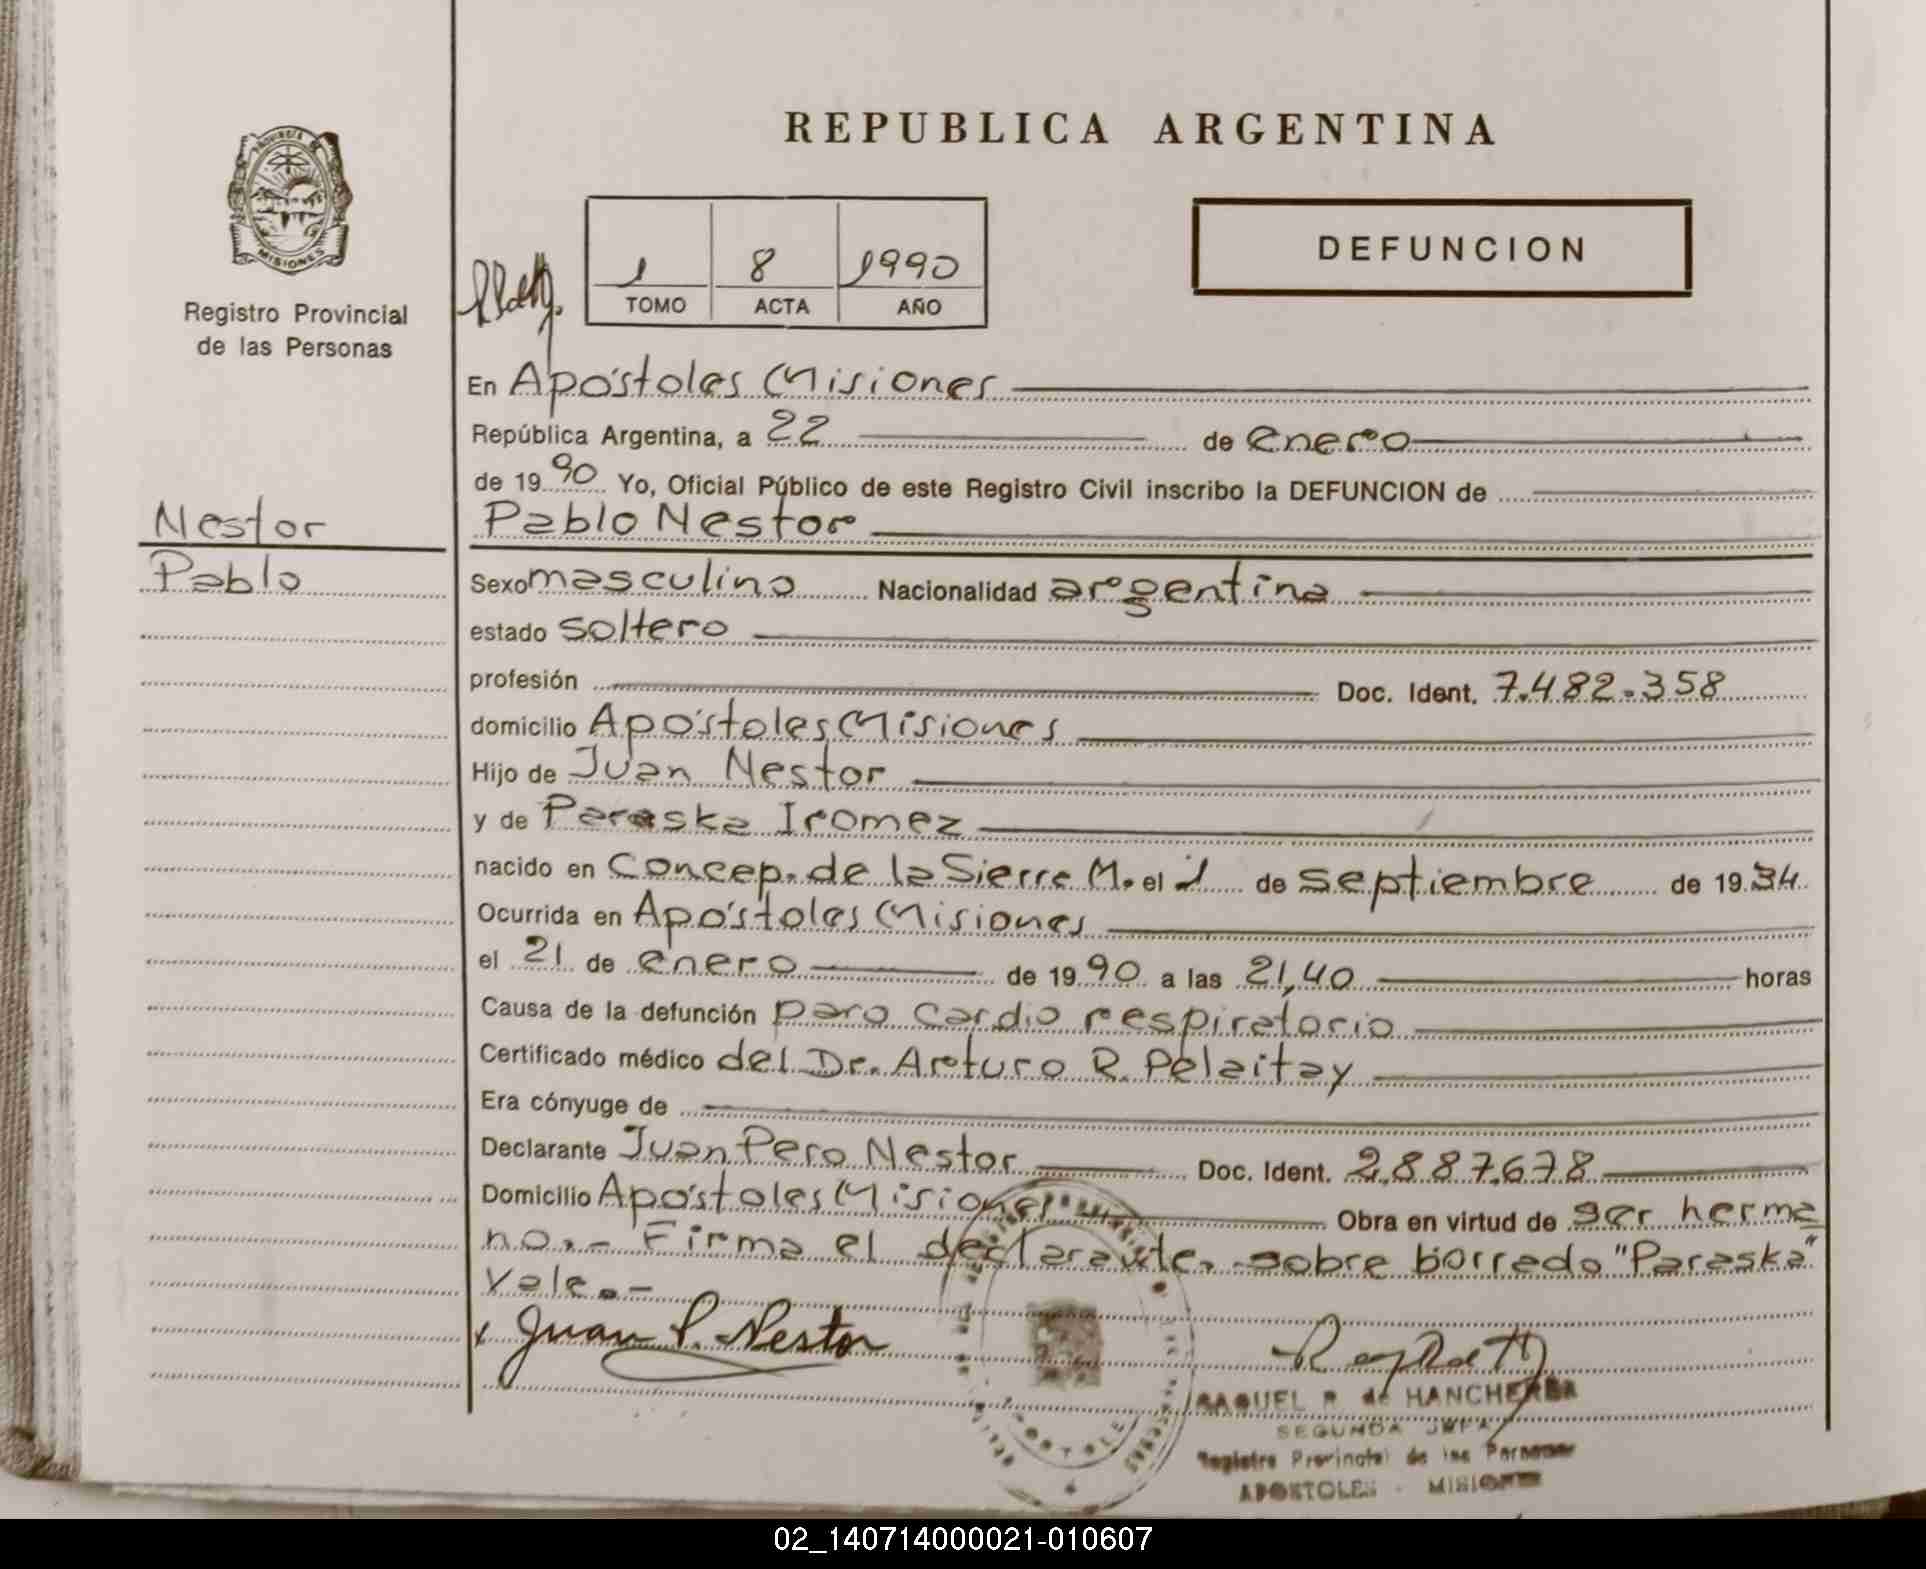 REPUBLICA ARGENTINA
PROVINCIA
MISIONES
Registro Provincial
de las Personas
1 8 1990
TOMO ACTA AÑO
DEFUNCION
En Apóstoles Misiones
República Argentina, a 22 de enero
de 1990 Yo, Oficial Público de este Registro Civil inscribo la DEFUNCION de
Nestor
Pablo
Pablo Nestor
Sexo masculino Nacionalidad argentina
estado soltero
profesión Doc. Ident. 7.482.358
domicilio Apóstoles Misiones
Hijo de Juan Nestor
y de Paraska Iromez
nacido en Concep. de la Sierra M. el 1 de septiembre de 1934
Ocurrida en Apóstoles Misiones
el 21 de enero de 1990 a las 21,40 horas
Causa de la defunción paro cardio respiratorio
Certificado médico del Dr. Arturo R. Pelaitay
Era cónyuge de
Declarante Juan Pero Nestor Doc. Ident. 2.887.678
Domicilio Apóstoles Misiones Obra en virtud de ser herma
no.- Firma el declarante. sobre borrado "Paraska"
Vale.-
Juan P. Nestor
RAQUEL R. de HANCHERUK
SEGUNDA JEFA
Registro Provincial de las Personas
APOSTOLES - MISIONES
02_140714000021-010607